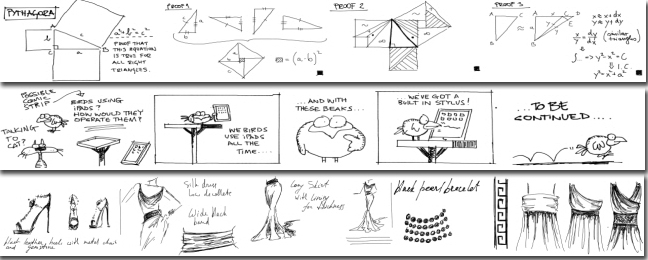 PYTHAGORA
A
b
c
B
C
a
a²+b²=c²
PROOF THAT
THIS EQUATION
IS TRUE FOR
ALL RIGHT
TRIANGLES.
PROOF 1
PROOF 2
PROOF 3
x→x+dx
y→y+dy
(similar
triangles)
y²=x²+a²
POSSIBLE
COMIC
STRIP
BIRDS USING
IPADS?
HOW WOULD THEY
OPERATE THEM?
TALKING
TO
CAT?
WE BIRDS
USE IPADS
ALL THE
TIME....
...AND WITH
THESE BEAKS...
WE'VE GOT A
BUILT IN STYLUS!
...TO BE
CONTINUED....
black leather heels with metal
and gemstone
Silk dress
Low decollete
Wide black
band
Long Skirt
with lining
for thickness
black pearl bracelet